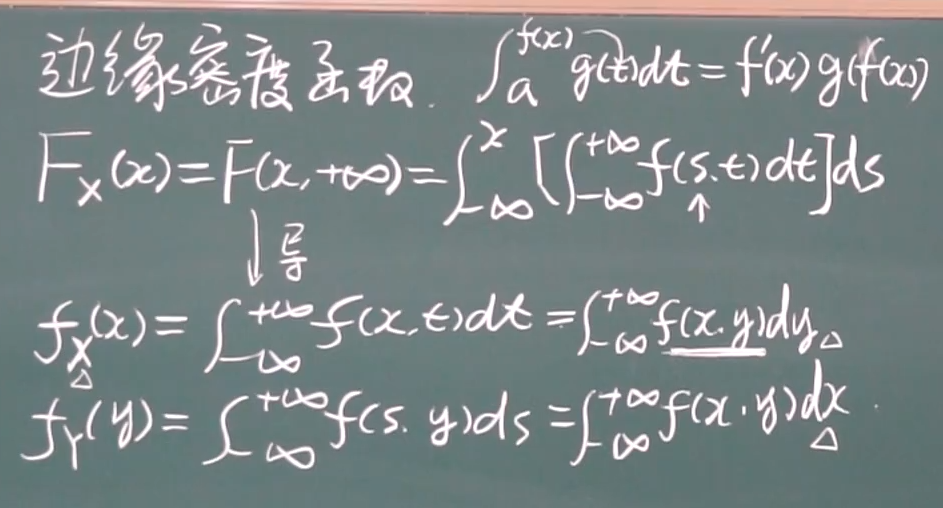 边缘密度函数. ∫_a^{f(x)} g(t)dt = f'(x) g(f(x))
F_X(x) = F(x, +∞) = ∫_{-∞}^{x} [∫_{-∞}^{+∞} f(s.t) dt] ds
↓ 导 ↑
f_X(x) = ∫_{-∞}^{+∞} f(x,t) dt = ∫_{-∞}^{+∞} f(x.y) dy △
△
f_Y(y) = ∫_{-∞}^{+∞} f(s. y) ds = ∫_{-∞}^{+∞} f(x.y) dx.
△